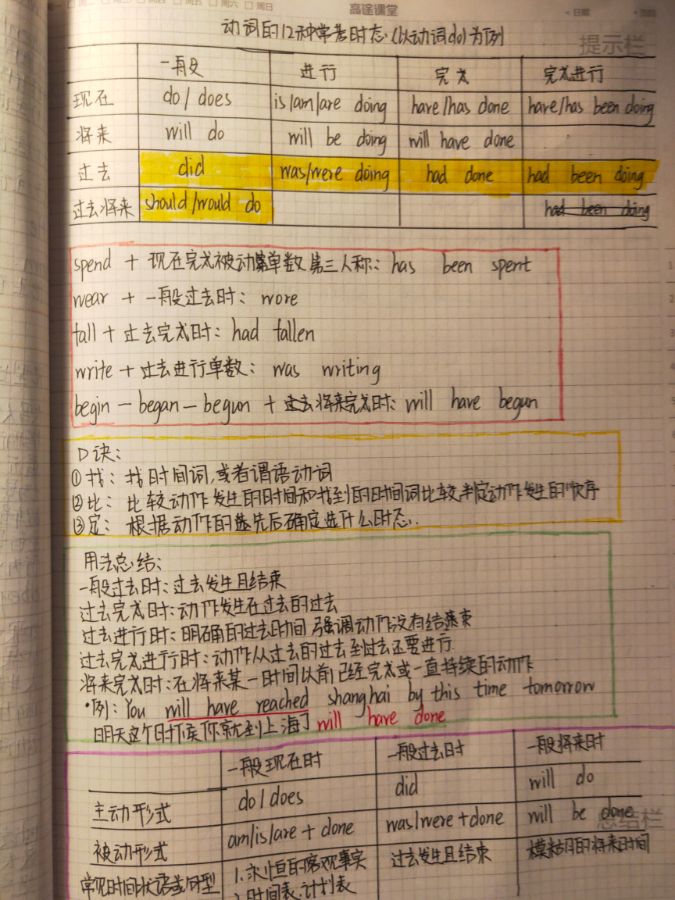 高途课堂
周五 周六 周日
日期
动词的12种常考时态(以动词do为例)
提示栏
一般 进行 完成 完成进行
现在 do/does is/am/are doing have/has done have/has been doing
将来 will do will be doing will have done
过去 did was/were doing had done had been doing
过去将来 should/would do had been doing
spend + 现在完成被动单数第三人称: has been spent
wear + 一般过去时: wore
fall + 过去完成时: had fallen
write + 过去进行单数: was writing
begin - began - begun + 将来完成时: will have begun
口诀:
①找: 找时间词,或者谓语动词
②比: 比较动作发生的时间和找到的时间词比较,判定动作发生的顺序
③定: 根据动作的先后确定选什么时态.
用法总结:
一般过去时:过去发生且结束
过去完成时:动作发生在过去的过去
过去进行时:明确的过去时间 强调动作没有结束
过去完成进行时:动作从过去的过去到过去还要进行
将来完成时:在将来某一时间以前已经完成或一直持续的动作
·例: You will have reached shanghai by this time tomorrow
明天这个时候你就到上海了 will have done
一般现在时 一般过去时 一般将来时
主动形式 do/does did will do
被动形式 am/is/are + done was/were + done will be done
总结栏
常见时间状语或句型 1.永恒的客观事实 过去发生且结束 模糊的将来时间
2.时间表,计划表